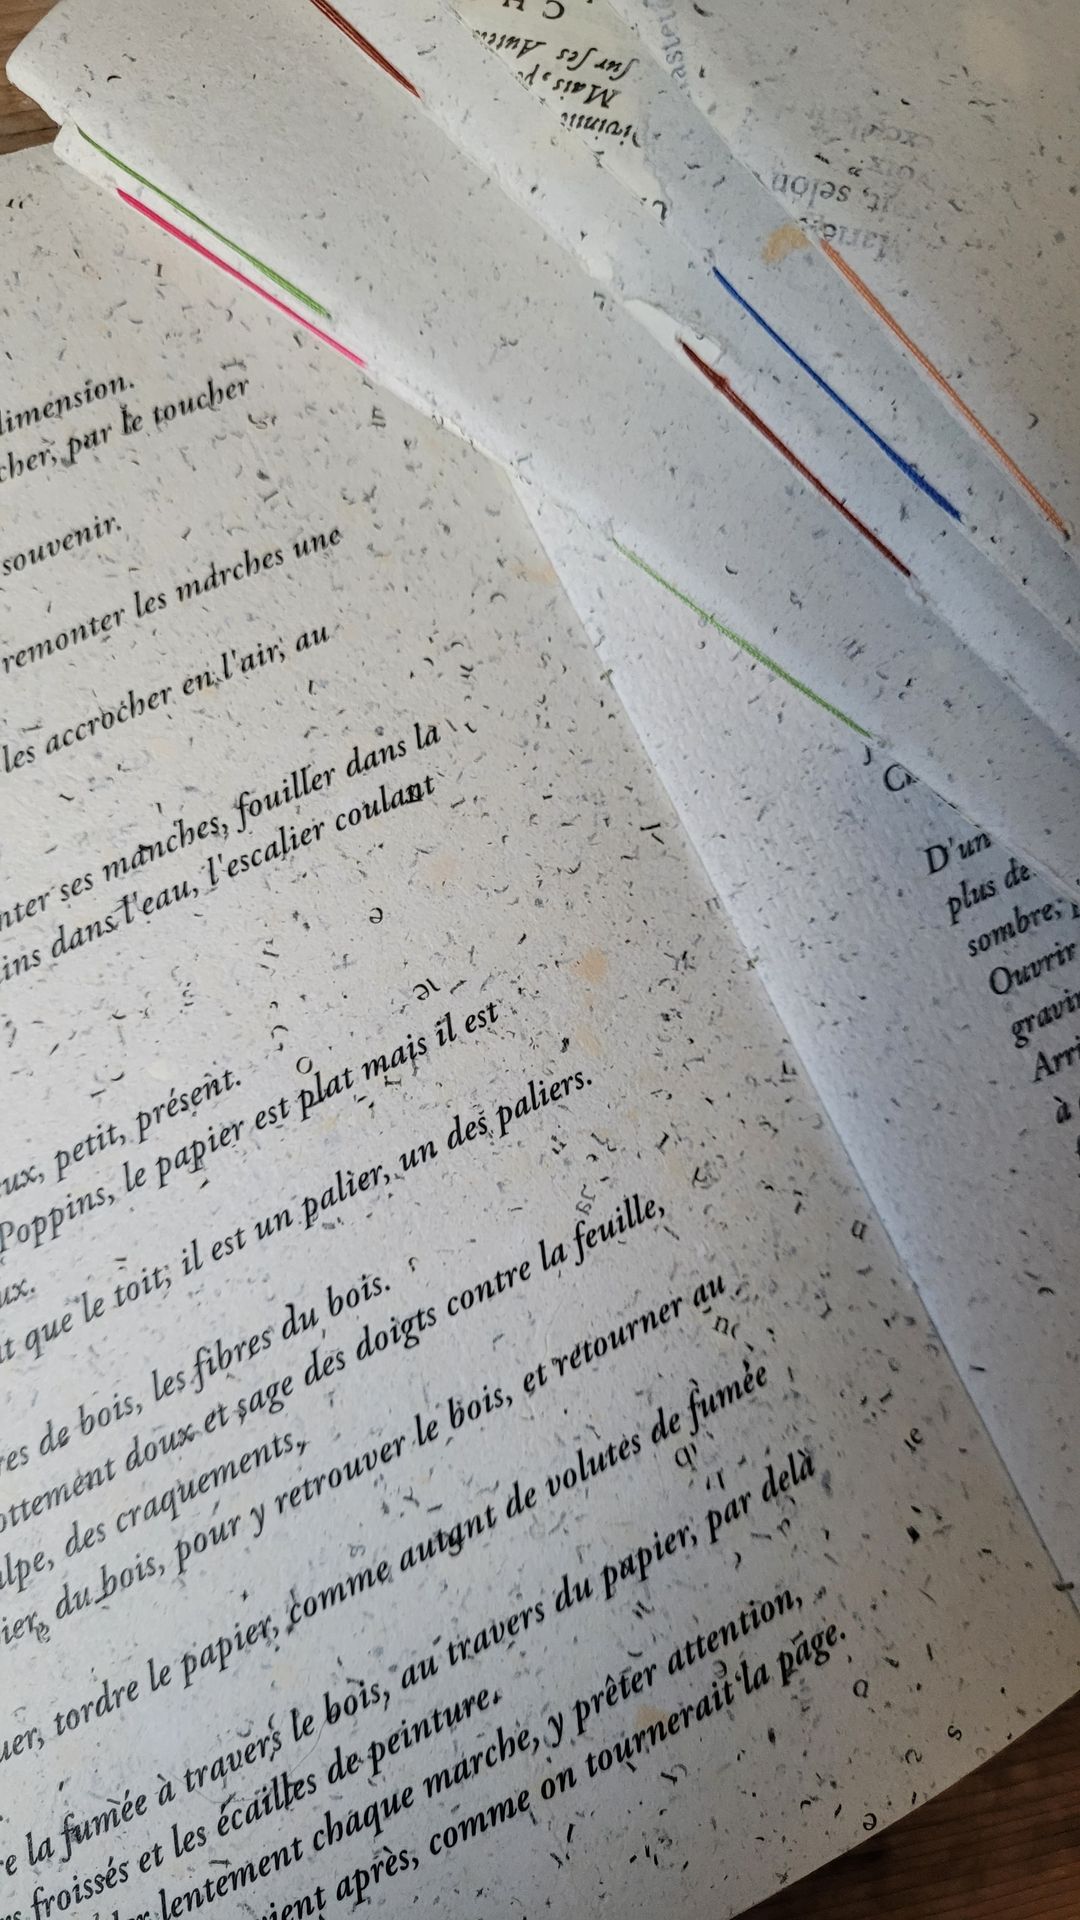 dimension.
cher, par le toucher
souvenir.
remonter les marches une
les accrocher en l'air, au
ses manches, fouiller dans la
dans l'eau, l'escalier coulant
petit, présent.
Poppins, le papier est plat mais il est
que le toit; il est un palier, un des paliers.
de bois, les fibres du bois.
doux et sage des doigts contre la feuille,
des craquements,
du bois, pour y retrouver le bois, et retourner au
tordre le papier, comme autant de volutes de fumée
la fumée à travers le bois, au travers du papier, par delà
froissés et les écailles de peinture.
lentement chaque marche, y prêter attention,
après, comme on tournerait la page.
D'un
plus de
sombre,
Ouvrir
gravir
Arri
à
C H
sur ses Aute
Mais, p
Divinit
, selon